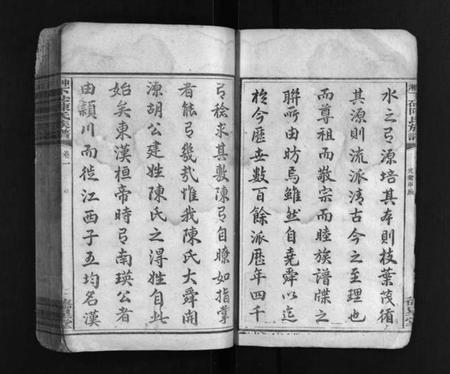 水之弓源培其本則枝葉茂循
其源則流派清古今之至理也
而尊祖而敬宗而睦族譜牒之
聨所由昉焉雖然自堯舜以迄
於今歷世數百餘派歷年四千
弓稔求其數陳弓自瞭如指掌
者能弓幾哉惟我陳氏大舜開
源胡公建姓陳氏之得姓自此
始矣東漢桓帝時弓南瑛公者
由潁川而徙江西子五均名漢
卷一